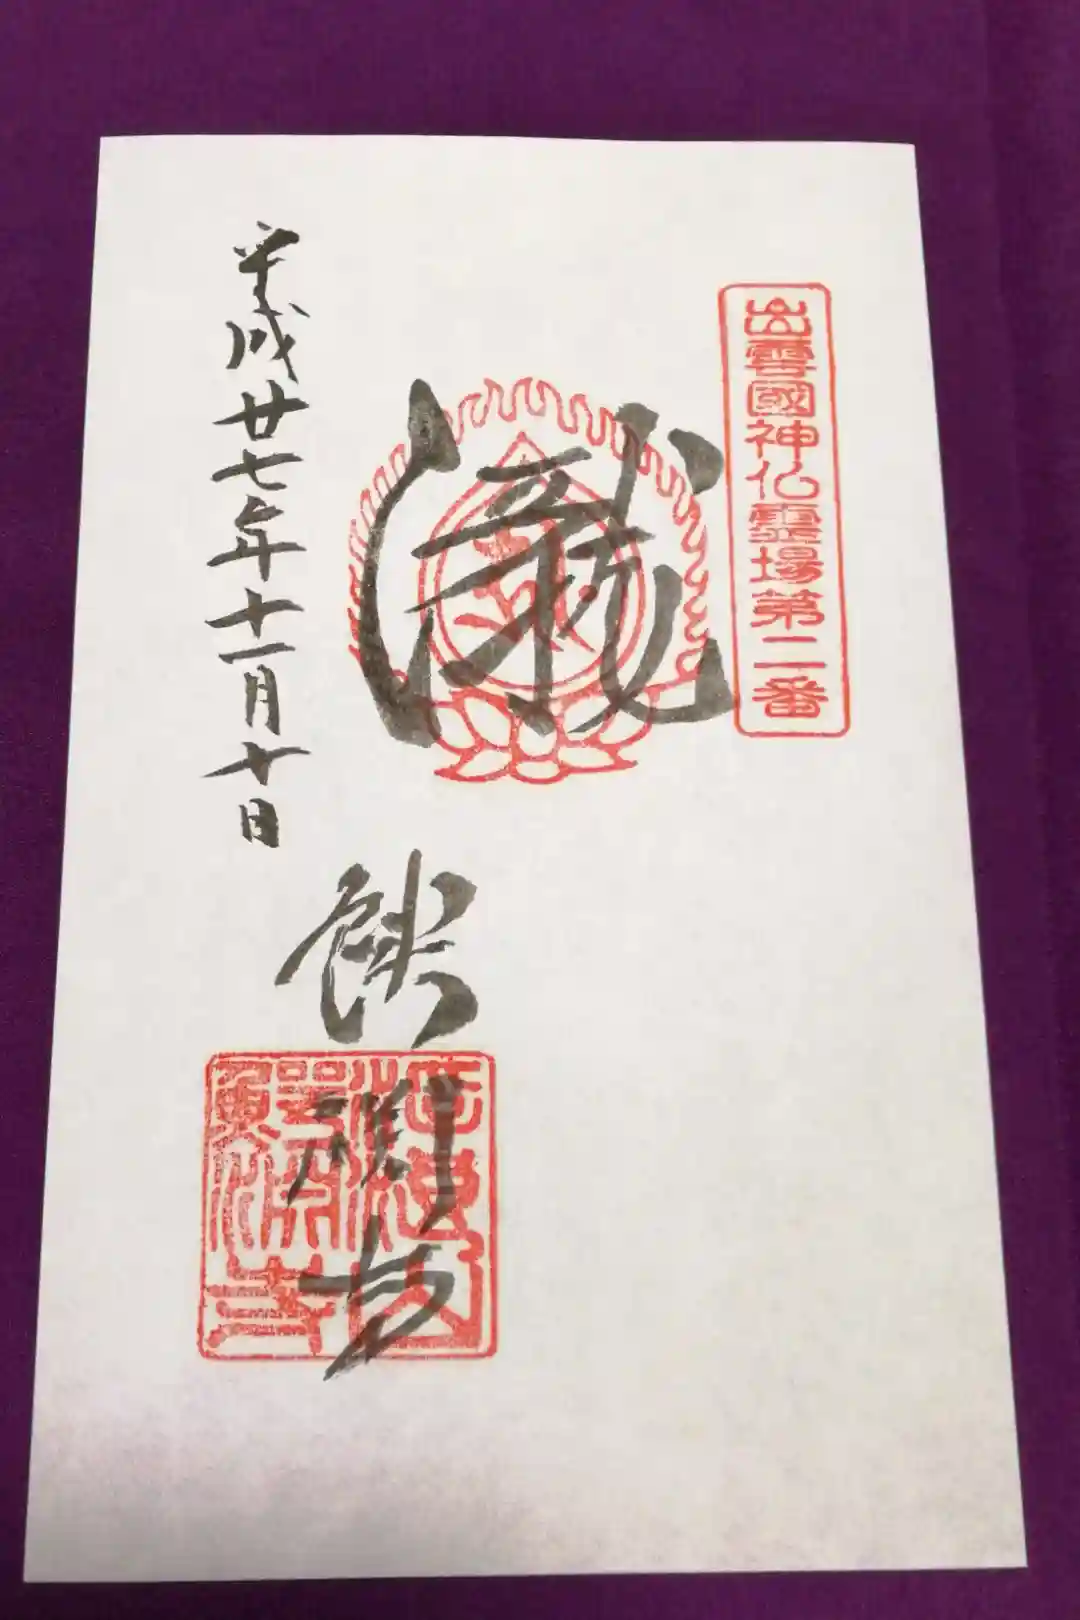 出雲國神仏霊場第二番
瀧
鰐淵寺
平成廿七年十一月十日